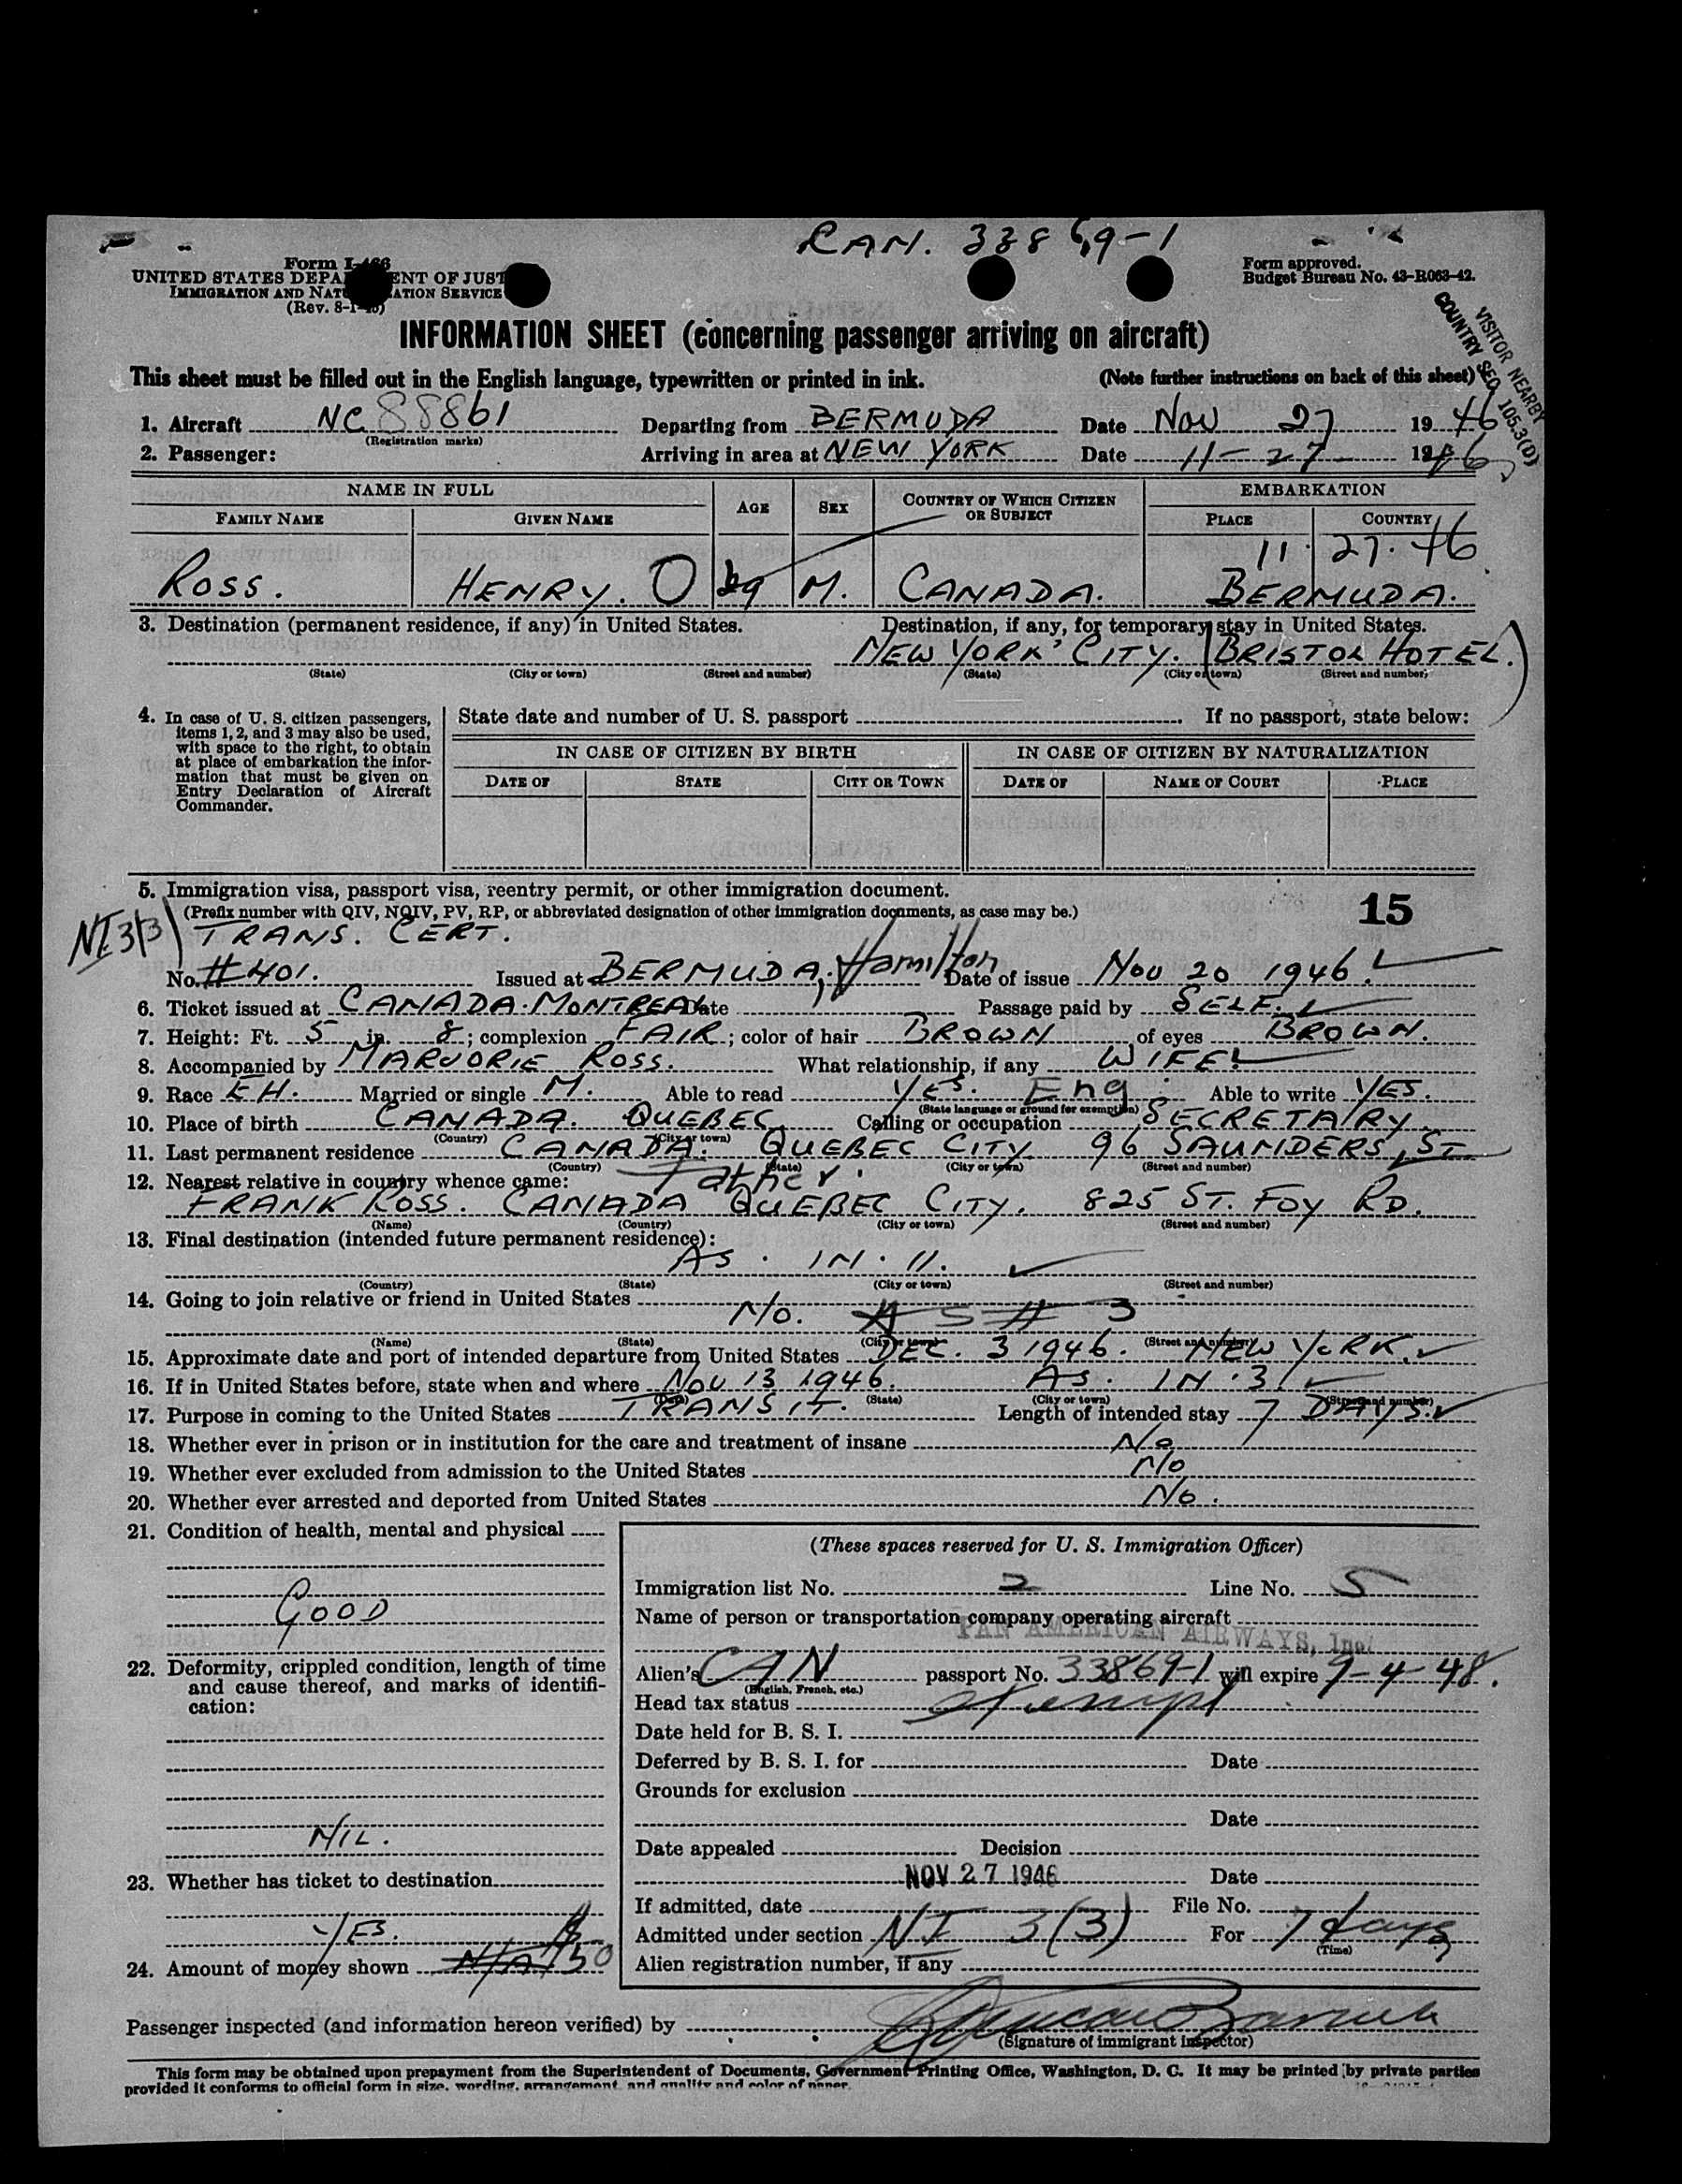 CAN. 33869-1
Form I-466
UNITED STATES DEPARTMENT OF JUSTICE
IMMIGRATION AND NATURALIZATION SERVICE
(Rev. 8-1-45)
Form approved.
Budget Bureau No. 43-R063-42.
VISITOR NEARBY
COUNTRY SEC 105.3(D)
INFORMATION SHEET (concerning passenger arriving on aircraft)
This sheet must be filled out in the English language, typewritten or printed in ink. (Note further instructions on back of this sheet)
1. Aircraft NC 88861 Departing from BERMUDA Date NOV 27 1946
(Registration marks)
2. Passenger: Arriving in area at NEW YORK Date 11-27- 1946
NAME IN FULL AGE SEX COUNTRY OF WHICH CITIZEN OR SUBJECT EMBARKATION
FAMILY NAME GIVEN NAME PLACE COUNTRY
11. 27. 46
ROSS. HENRY. O 29 M. CANADA. BERMUDA.
3. Destination (permanent residence, if any) in United States. Destination, if any, for temporary stay in United States.
NEW YORK CITY. (BRISTOL HOTEL.)
(State) (City or town) (Street and number) (State) (City or town) (Street and number)
4. In case of U. S. citizen passengers, items 1, 2, and 3 may also be used, with space to the right, to obtain at place of embarkation the information that must be given on Entry Declaration of Aircraft Commander.
State date and number of U. S. passport If no passport, state below:
IN CASE OF CITIZEN BY BIRTH IN CASE OF CITIZEN BY NATURALIZATION
DATE OF STATE CITY OR TOWN DATE OF NAME OF COURT PLACE
5. Immigration visa, passport visa, reentry permit, or other immigration document.
(Prefix number with QIV, NQIV, PV, RP, or abbreviated designation of other immigration documents, as case may be.) 15
NI 3(3) TRANS. CERT.
No. #401. Issued at BERMUDA, Hamilton Date of issue NOV 20 1946.
6. Ticket issued at CANADA. MONTREAL Date Passage paid by SELF.
7. Height: Ft. 5 in. 8; complexion FAIR; color of hair BROWN of eyes BROWN.
8. Accompanied by MARJORIE ROSS. What relationship, if any WIFE.
9. Race EH. Married or single M. Able to read YES. Eng Able to write YES.
(State language or ground for exemption)
10. Place of birth CANADA. QUEBEC. Calling or occupation SECRETARY.
(Country) (City or town)
11. Last permanent residence CANADA. QUEBEC CITY 96 SAUNDERS, ST
(Country) (State) (City or town) (Street and number)
12. Nearest relative in country whence came: Father.
FRANK ROSS. CANADA QUEBEC CITY. 825 ST. FOY RD.
(Name) (Country) (City or town) (Street and number)
13. Final destination (intended future permanent residence):
AS. IN. 11.
(Country) (State) (City or town) (Street and number)
14. Going to join relative or friend in United States
NO. AS # 3
(Name) (State) (City or town) (Street and number)
15. Approximate date and port of intended departure from United States DEC. 3 1946. NEW YORK.
16. If in United States before, state when and where NOV 13 1946. AS. IN. 3
(Date) (State) (City or town) (Street and number)
17. Purpose in coming to the United States TRANSIT. Length of intended stay 7 DAYS.
18. Whether ever in prison or in institution for the care and treatment of insane NO
19. Whether ever excluded from admission to the United States NO
20. Whether ever arrested and deported from United States NO.
21. Condition of health, mental and physical
GOOD
22. Deformity, crippled condition, length of time and cause thereof, and marks of identification:
NIL.
23. Whether has ticket to destination
YES.
24. Amount of money shown N/A $150
(These spaces reserved for U. S. Immigration Officer)
Immigration list No. 2 Line No. 5
Name of person or transportation company operating aircraft
PAN AMERICAN AIRWAYS, Inc.
Alien's CAN passport No. 33869-1 will expire 9-4-48.
(English, French, etc.)
Head tax status Exempt
Date held for B. S. I.
Deferred by B. S. I. for Date
Grounds for exclusion
Date
Date appealed Decision
NOV 27 1946 Date
If admitted, date File No.
Admitted under section NI 3(3) For 7 days
(Time)
Alien registration number, if any
Passenger inspected (and information hereon verified) by
(Signature of immigrant inspector)
This form may be obtained upon prepayment from the Superintendent of Documents, Government Printing Office, Washington, D. C. It may be printed by private parties
provided it conforms to official form in size, wording, arrangement, and quality and color of paper.